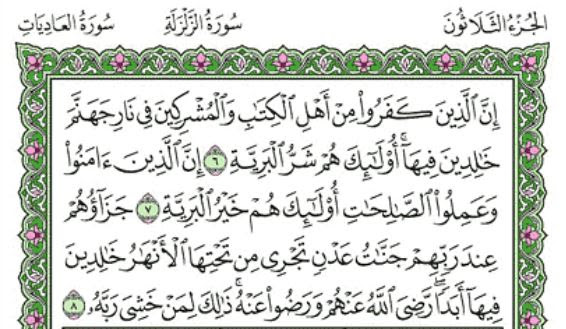 الجُزْءُ الثَّلَاثُونَ سُورَةُ الزَّلْزَلَةِ سُورَةُ العَادِيَاتِ
إِنَّ ٱلَّذِينَ كَفَرُوا۟ مِنْ أَهْلِ ٱلْكِتَٰبِ وَٱلْمُشْرِكِينَ فِى نَارِ جَهَنَّمَ
خَٰلِدِينَ فِيهَآ ۚ أُو۟لَٰٓئِكَ هُمْ شَرُّ ٱلْبَرِيَّةِ ٦ إِنَّ ٱلَّذِينَ ءَامَنُوا۟
وَعَمِلُوا۟ ٱلصَّٰلِحَٰتِ أُو۟لَٰٓئِكَ هُمْ خَيْرُ ٱلْبَرِيَّةِ ٧ جَزَآؤُهُمْ
عِندَ رَبِّهِمْ جَنَّٰتُ عَدْنٍ تَجْرِى مِن تَحْتِهَا ٱلْأَنْهَٰرُ خَٰلِدِينَ
فِيهَآ أَبَدًا ۖ رَّضِىَ ٱللَّهُ عَنْهُمْ وَرَضُوا۟ عَنْهُ ۚ ذَٰلِكَ لِمَنْ خَشِىَ رَبَّهُۥ ٨